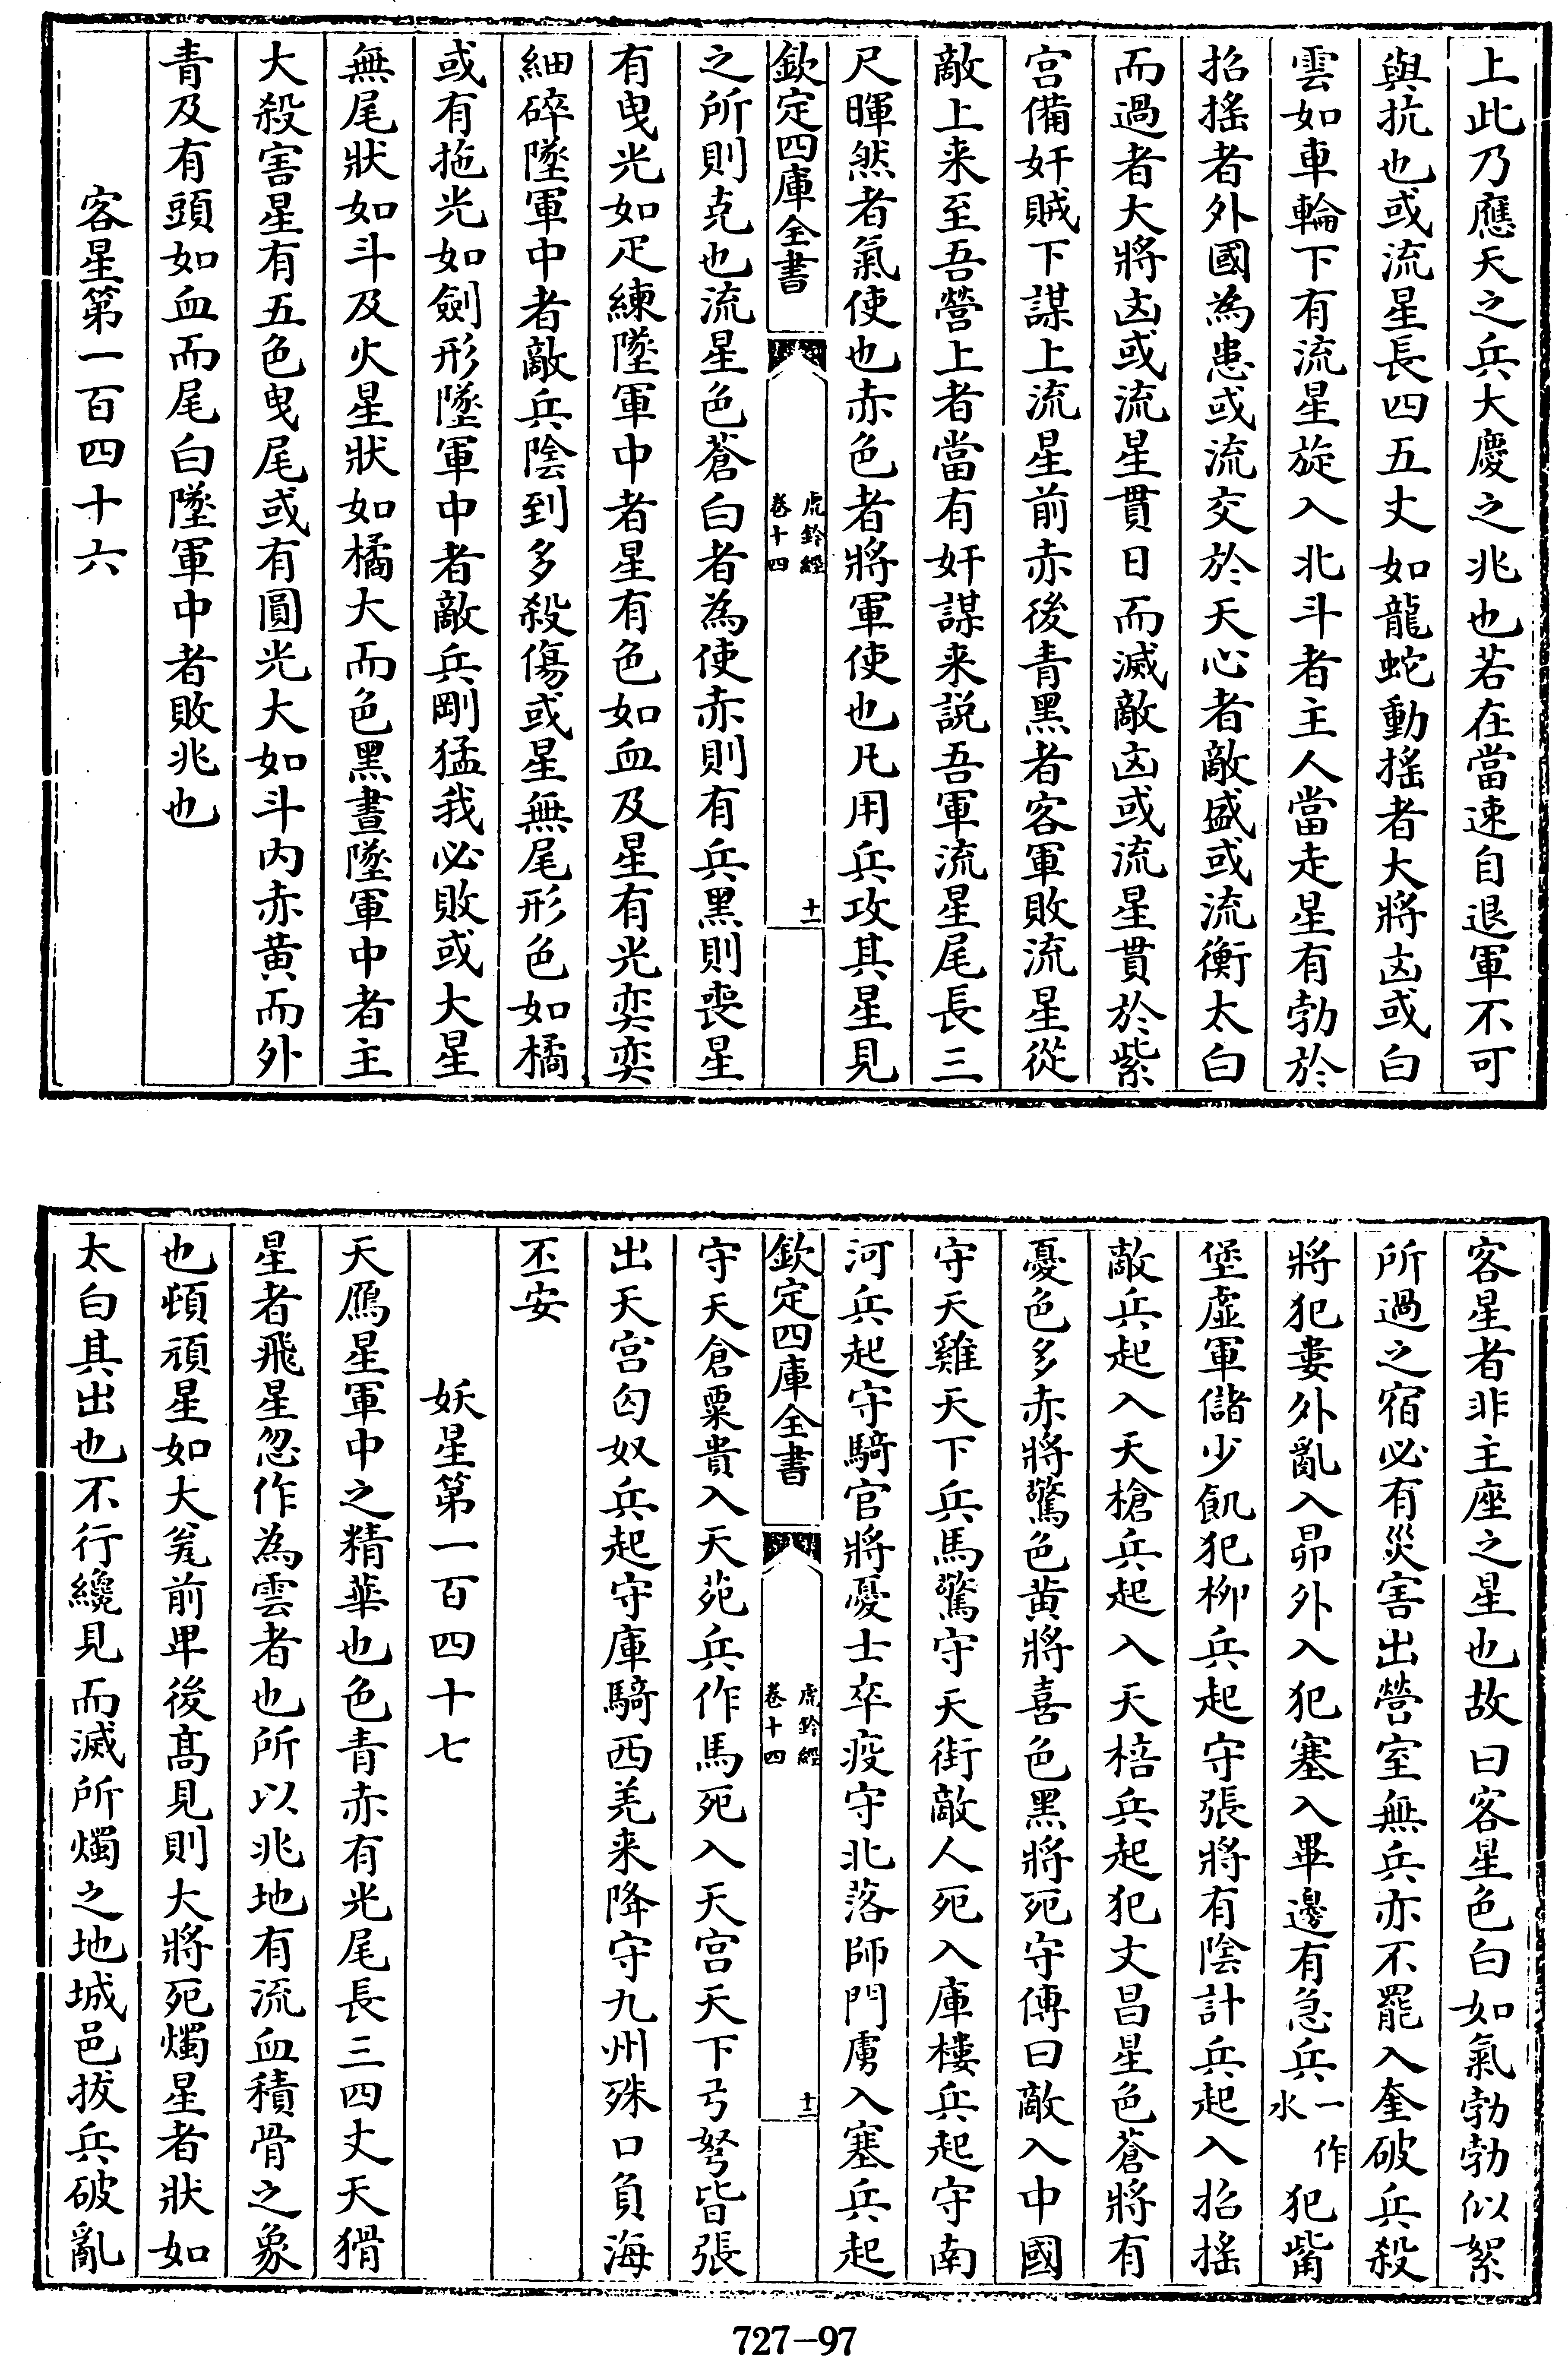 上此乃應天之兵大慶之兆也若在當速自退軍不可
與抗也或流星長四五丈如龍蛇動揺者大將凶或白
雲如車輪下有流星旋入北斗者主人當走星有勃於
招揺者外國為患或流交於天心者敵盛或流衡太白
而過者大將凶或流星貫日而滅敵凶或流星貫於紫
宫備奸賊下謀上流星前赤後青黑者客軍敗流星從
敵上来至吾營上者當有奸謀来説吾軍流星尾長三
尺暉然者氣使也赤色者將軍使也凡用兵攻其星見
欽定四庫全書
虎鈐經
卷十四
十一
之所則克也流星色蒼白者為使赤則有兵黑則喪星
有曳光如疋練墜軍中者星有色如血及星有光奕奕
細碎墜軍中者敵兵陰到多殺傷或星無尾形色如橘
或有拖光如劍形墜軍中者敵兵剛猛我必敗或大星
無尾狀如斗及火星狀如橘大而色黑晝墜軍中者主
大殺害星有五色曳尾或有圓光大如斗内赤黄而外
青及有頭如血而尾白墜軍中者敗兆也
客星第一百四十六
客星者非主座之星也故曰客星色白如氣勃勃似絮
所過之宿必有災害出營室無兵亦不罷入奎破兵殺
將犯婁外亂入昴外入犯塞入畢邊有急兵一作水犯觜
堡虚軍儲少飢犯柳兵起守張將有陰計兵起入招揺
敵兵起入天槍兵起入天棓兵起犯文昌星色蒼將有
憂色多赤將驚色黄將喜色黑將死守傳曰敵入中國
守天雞天下兵馬驚守天街敵人死入庫樓兵起守南
河兵起守騎官將憂士卒疫守北落師門虜入塞兵起
欽定四庫全書
虎鈐經
卷十四
十二
守天倉粟貴入天苑兵作馬死入天宫天下弓弩皆張
出天宫匈奴兵起守庫騎西羌来降守九州殊口負海
丕安
妖星第一百四十七
天鴈星軍中之精華也色青赤有光尾長三四丈天猾
星者飛星忽作為雲者也所以兆地有流血積骨之象
也頓頑星如大瓮前卑後髙見則大將死燭星者狀如
太白其出也不行纔見而滅所燭之地城邑拔兵破亂
727-97